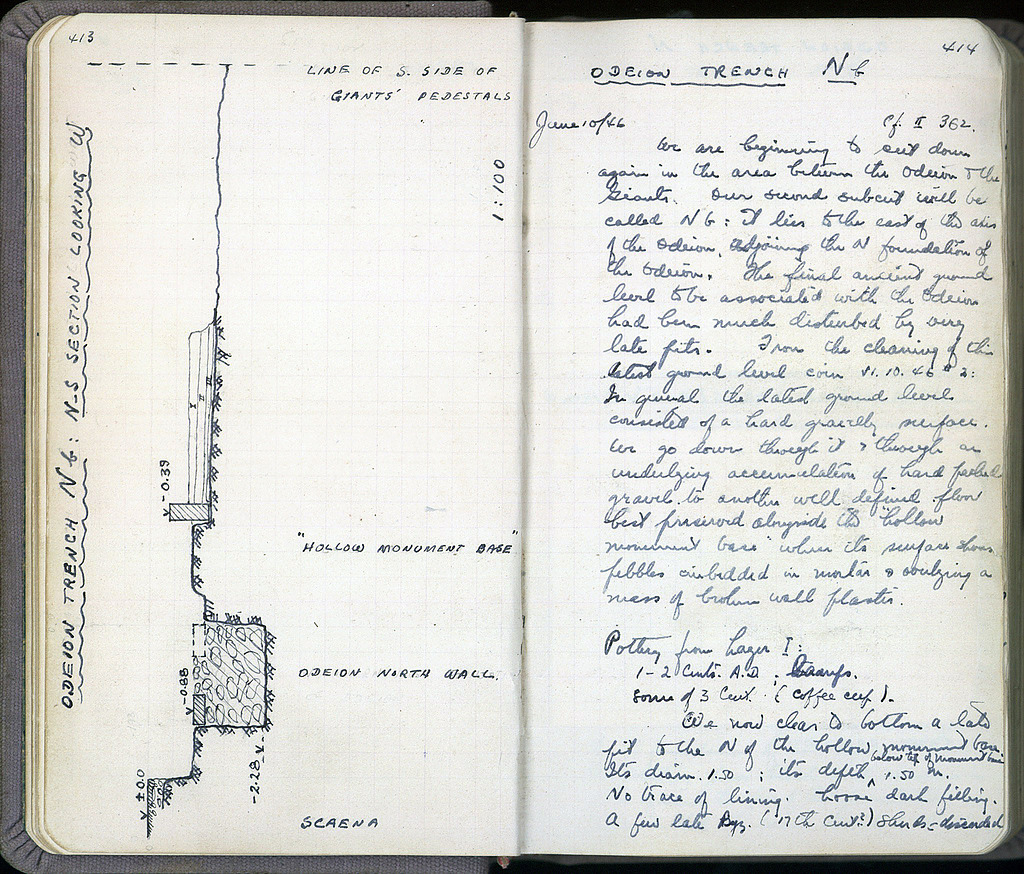 413
LINE OF S. SIDE OF
GIANTS' PEDESTALS
1:100
ODEION TRENCH Nb: N-S SECTION LOOKING W
I
II
V -0.39
"HOLLOW MONUMENT BASE"
ODEION NORTH WALL.
V -0.88
V -2.28
± 0.0
SCAENA
414
ODEION TRENCH Nb
June 10/46
Cf. II 362.
We are beginning to set down
again in the area between the Odeion & the
Giants. Our second subcut will be
called Nb: It lies to the east of the axis
of the Odeion, adjoining the N foundation of
the Odeion. The final ancient ground
level to be associated with the Odeion
had been much disturbed by very
late pits. From the cleaning of this
latest ground level coin 11.10.46 # 2:
In general the latest ground level
consisted of a hard gravelly surface.
We go down through it & through an
undulging accumulation of hard packed
gravel to another well defined floor
best preserved alongside the "hollow
monument base" when its surface shows
pebbles embedded in mortar & overlying a
mass of broken wall plaster.
Pottery from Layer I:
1-2 Cents. A.D.; lamps.
some of 3 Cent. (coffee cup).
We now clear to bottom a late
pit to the N of the hollow monument base
Its diam. 1.50; its depth below top of monument base 1.50 m.
No trace of lining. Loose dark filling.
A few late Byz. (17th Cent?) sherds - discarded